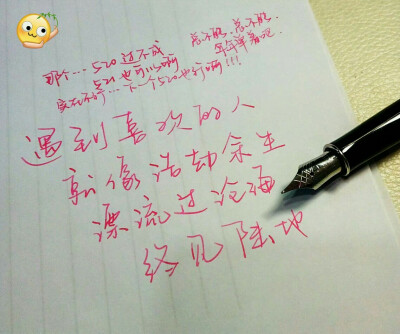 那个…520过不成
521也可以啊
实在不行…下一个520也行啊!!!
总不能.总不能.
年年单着吧..
遇到喜欢的人
就像浩劫余生
漂流过沧海
终见陆地